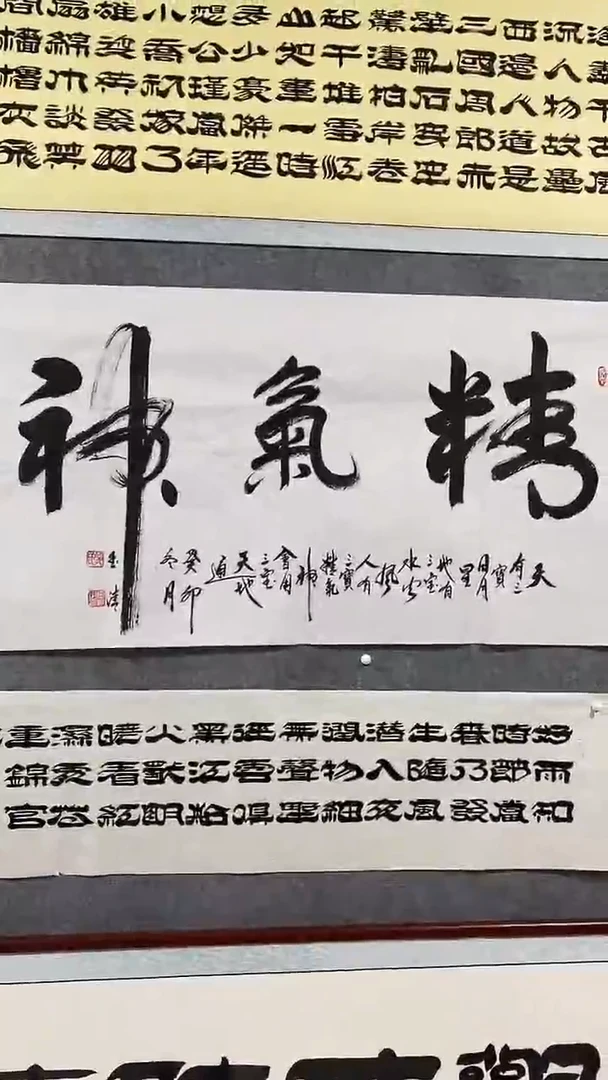 盡千古風
流人物故壘
西邊人道是
三國周郎赤
壁亂石穿空
驚濤拍岸卷
起千堆雪江
山如畫一時
多少豪傑遙
想公瑾當年
小喬初嫁了
雄姿英發羽
扇綸巾談笑
間檣櫓灰飛
精氣神
天
有三
寶
日月
星
地有三寶
水火
風
人有
三寶
精氣
神
會用三寶
天地
通
癸卯
冬月
好雨知
時節當
春乃發
生隨風
潛入夜
潤物細
無聲野
徑雲俱
黑江船
火獨明
曉看紅
濕處花
重錦官